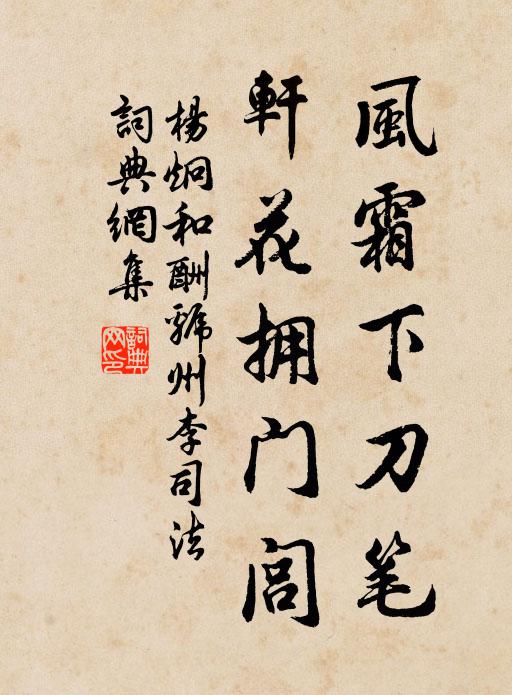 風霜下刀笔
軒花拥门闾
楊炯和酬虢州李司法
詞典網集
詞典网印